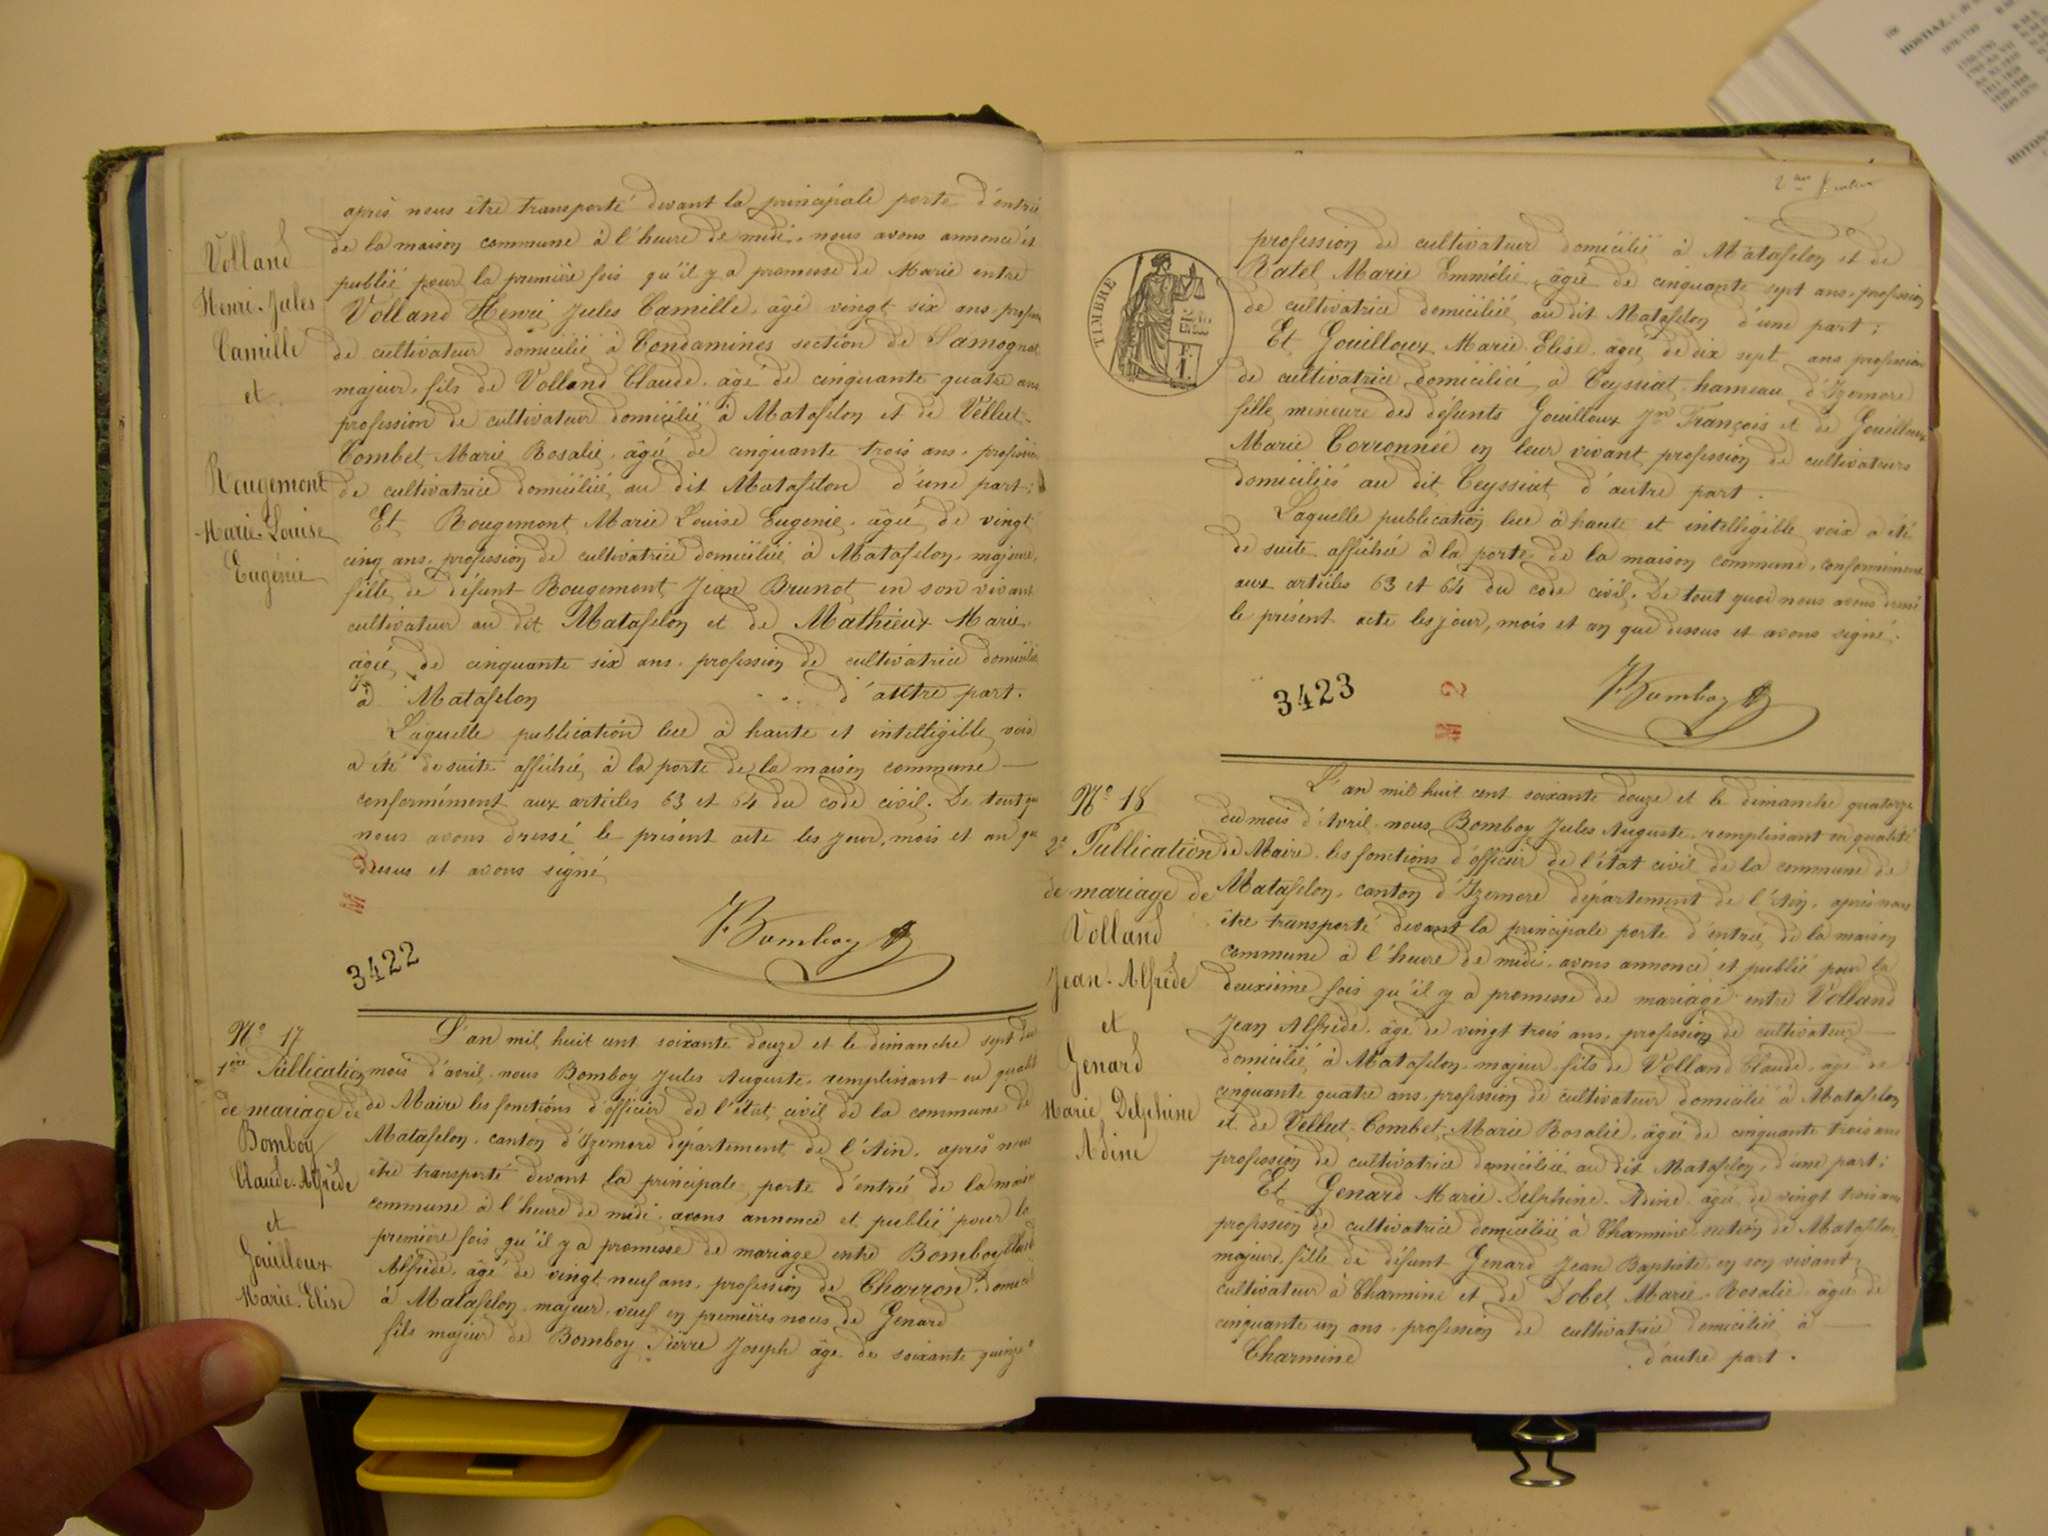 après nous être transporté devant la principale porte d'entrée
de la maison commune à l'heure de midi, nous avons annoncé et
publié pour la première fois qu'il y a promesse de Marie entre
Volland Henri Jules Camille, âgé vingt six ans, profession
de cultivateur domicilié à Condamines section de Samognat
majeur, fils de Volland Claude, âgé de cinquante quatre ans
profession de cultivateur domicilié à Matafelon et de Vellut-
Combet Marie Rosalie, âgée de cinquante trois ans, profession
de cultivatrice domiciliée au dit Matafelon d'une part;
Et Rougemont Marie Louise Eugénie, âgée de vingt
cinq ans, profession de cultivatrice domiciliée à Matafelon, majeure,
fille de défunt Rougemont Jean Brunot en son vivant
cultivateur au dit Matafelon et de Mathieux Marie,
âgée de cinquante six ans, profession de cultivatrice domiciliée
à Matafelon d'autre part.
Laquelle publication lue à haute et intelligible voix
a été de suite affichée à la porte de la maison commune
conformément aux articles 63 et 64 du code civil. De tout quoi
nous avons dressé le présent acte les jour, mois et an que
dessus et avons signé
Bomboy
3422
M
Volland
Henri-Jules
Camille
et
Rougemont
Marie-Louise
Eugénie
Nº 17
1ère Publication
de mariage de
Bomboy
Claude-Alfrède
et
Gouilloux
Marie-Elise
L'an mil huit cent soixante douze et le dimanche sept du
mois d'avril, nous Bomboy Jules Auguste, remplissant en qualité
de Maire les fonctions d'officier de l'état civil de la commune de
Matafelon, canton d'Izernore département de l'Ain, après nous
être transporté devant la principale porte d'entrée de la maison
commune à l'heure de midi, avons annoncé et publié pour la
première fois qu'il y a promesse de mariage entre Bomboy Claude
Alfrède, âgé de vingt neuf ans, profession de Charron, domicilié
à Matafelon, majeur, veuf en premières noces de Genard
fils majeur de Bomboy Pierre Joseph âgé de soixante quinze
2me
profession de cultivateur domicilié à Matafelon et de
Ratel Marie Emmélie, âgée de cinquante sept ans, profession
de cultivatrice domiciliée au dit Matafelon d'une part;
Et Gouilloux Marie Elise, âgée de dix sept ans profession
de cultivatrice domiciliée à Ceyssiat hameau d'Izernore
fille mineure des défunts Gouilloux Jn François et de Gouilloux
Marie Corronnée en leur vivant profession de cultivateurs
domiciliés au dit Ceyssiat d'autre part.
Laquelle publication lue à haute et intelligible voix a été
de suite affichée à la porte de la maison commune, conformément
aux articles 63 et 64 du code civil. De tout quoi nous avons dressé
le présent acte les jour, mois et an que dessus et avons signé.
Bomboy
TIMBRE
3423
M 2
Nº 18
2e Publication
de mariage de
Volland
Jean-Alfrède
et
Genard
Marie Delphine
Adine
L'an mil huit cent soixante douze et le dimanche quatorze
du mois d'Avril, nous Bomboy Jules Auguste, remplissant en qualité
de Maire, les fonctions d'officier de l'état civil de la commune de
Matafelon, canton d'Izernore département de l'Ain, après nous
être transporté devant la principale porte d'entrée de la maison
commune à l'heure de midi, avons annoncé et publié pour la
deuxième fois qu'il y a promesse de mariage entre Volland
Jean Alfrède, âgé de vingt trois ans, profession de cultivateur
domicilié à Matafelon, majeur, fils de Volland Claude, âgé de
cinquante quatre ans, profession de cultivateur domicilié à Matafelon
et de Vellut-Combet Marie Rosalie, âgée de cinquante trois ans
profession de cultivatrice domiciliée au dit Matafelon, d'une part;
Et Genard Marie Delphine Adine âgée de vingt trois ans
profession de cultivatrice domiciliée à Charmine section de Matafelon,
majeure, fille de défunt Genard Jean Baptiste en son vivant,
cultivateur à Charmine et de Dobet Marie Rosalie âgée de
cinquante un ans, profession de cultivatrice domiciliée à
Charmine d'autre part.
HOSTIAZ